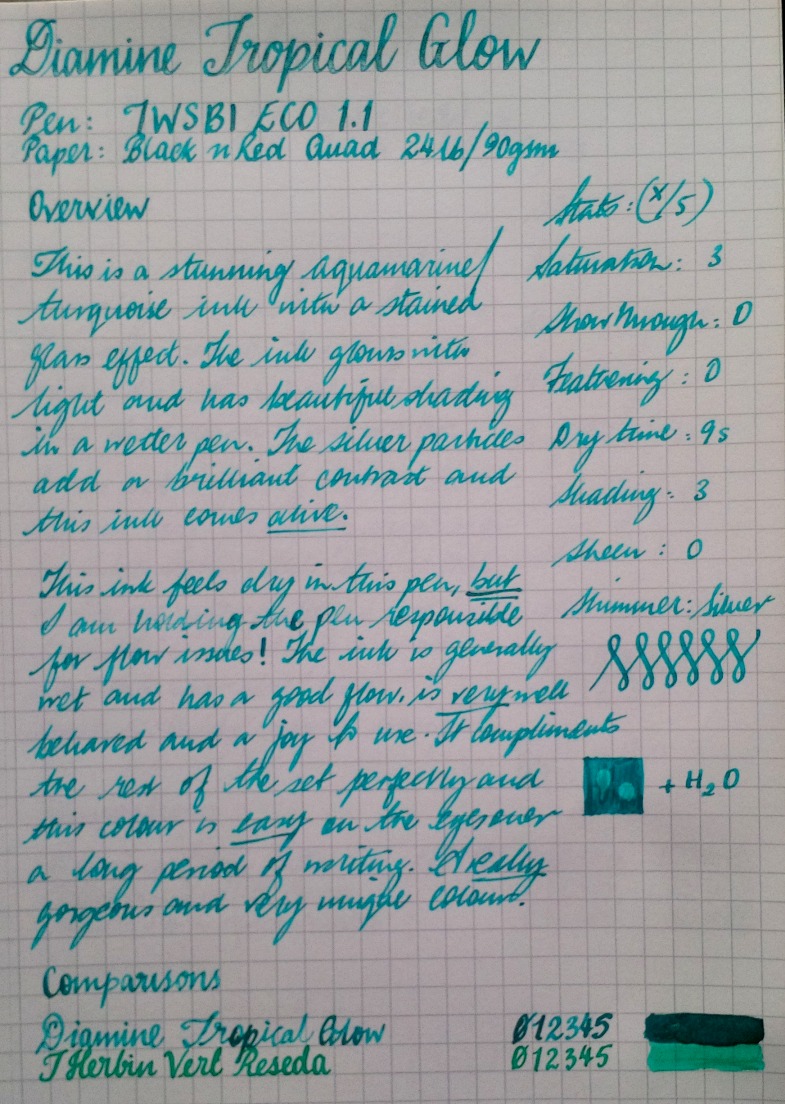 Diamine Tropical Glow
Pen: TWSBI ECO 1.1
Paper: Black n Red Quad 24lb/90gsm
Overview
This is a stunning aquamarine/
turquoise ink with a stained
glass effect. The ink glows with
light and has beautiful shading
in a wetter pen. The silver particles
add a brilliant contrast and
this ink comes alive.
This ink feels dry in this pen, but
I am holding the pen responsible
for flow issues! The ink is generally
wet and has a good flow, is very well
behaved and a joy to use. It compliments
the rest of the set perfectly and
this colour is easy on the eyes over
a long period of writing. A really
gorgeous and very unique colour.
Stats: (x/5)
Saturation: 3
Show through: 0
Feathering: 0
Dry time: 9s
Shading: 3
Sheen: 0
Shimmer: Silver
+ H2O
Comparisons
Diamine Tropical Glow 012345
J Herbin Vert Reseda 012345